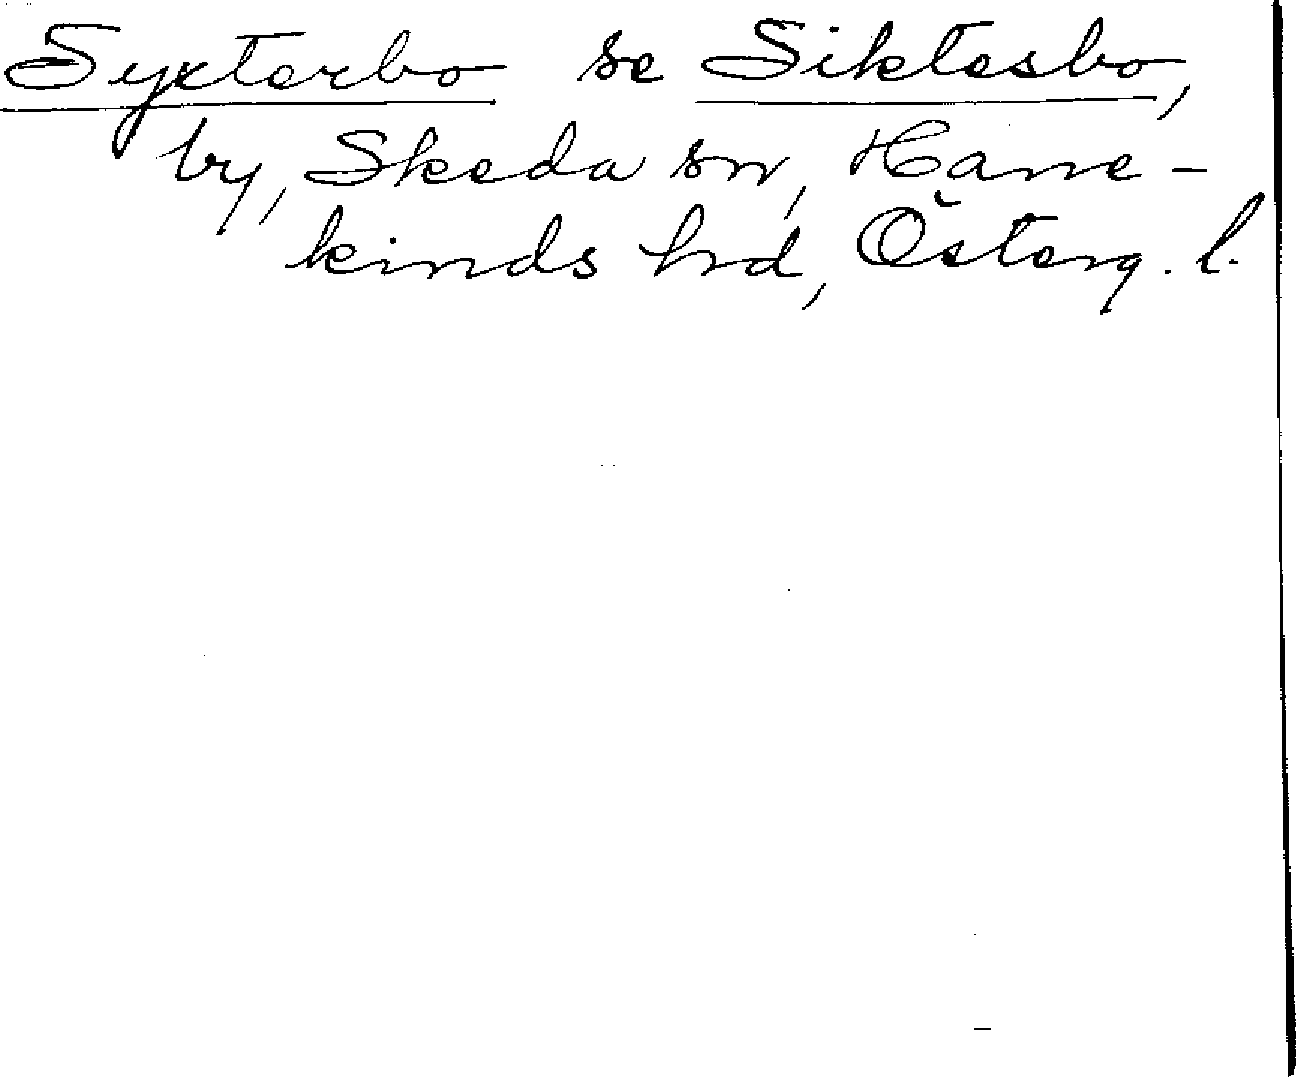 Syxterbo se Siktesbo,
by, Skeda sn, Hane-
kinds hrd, Österg. l.